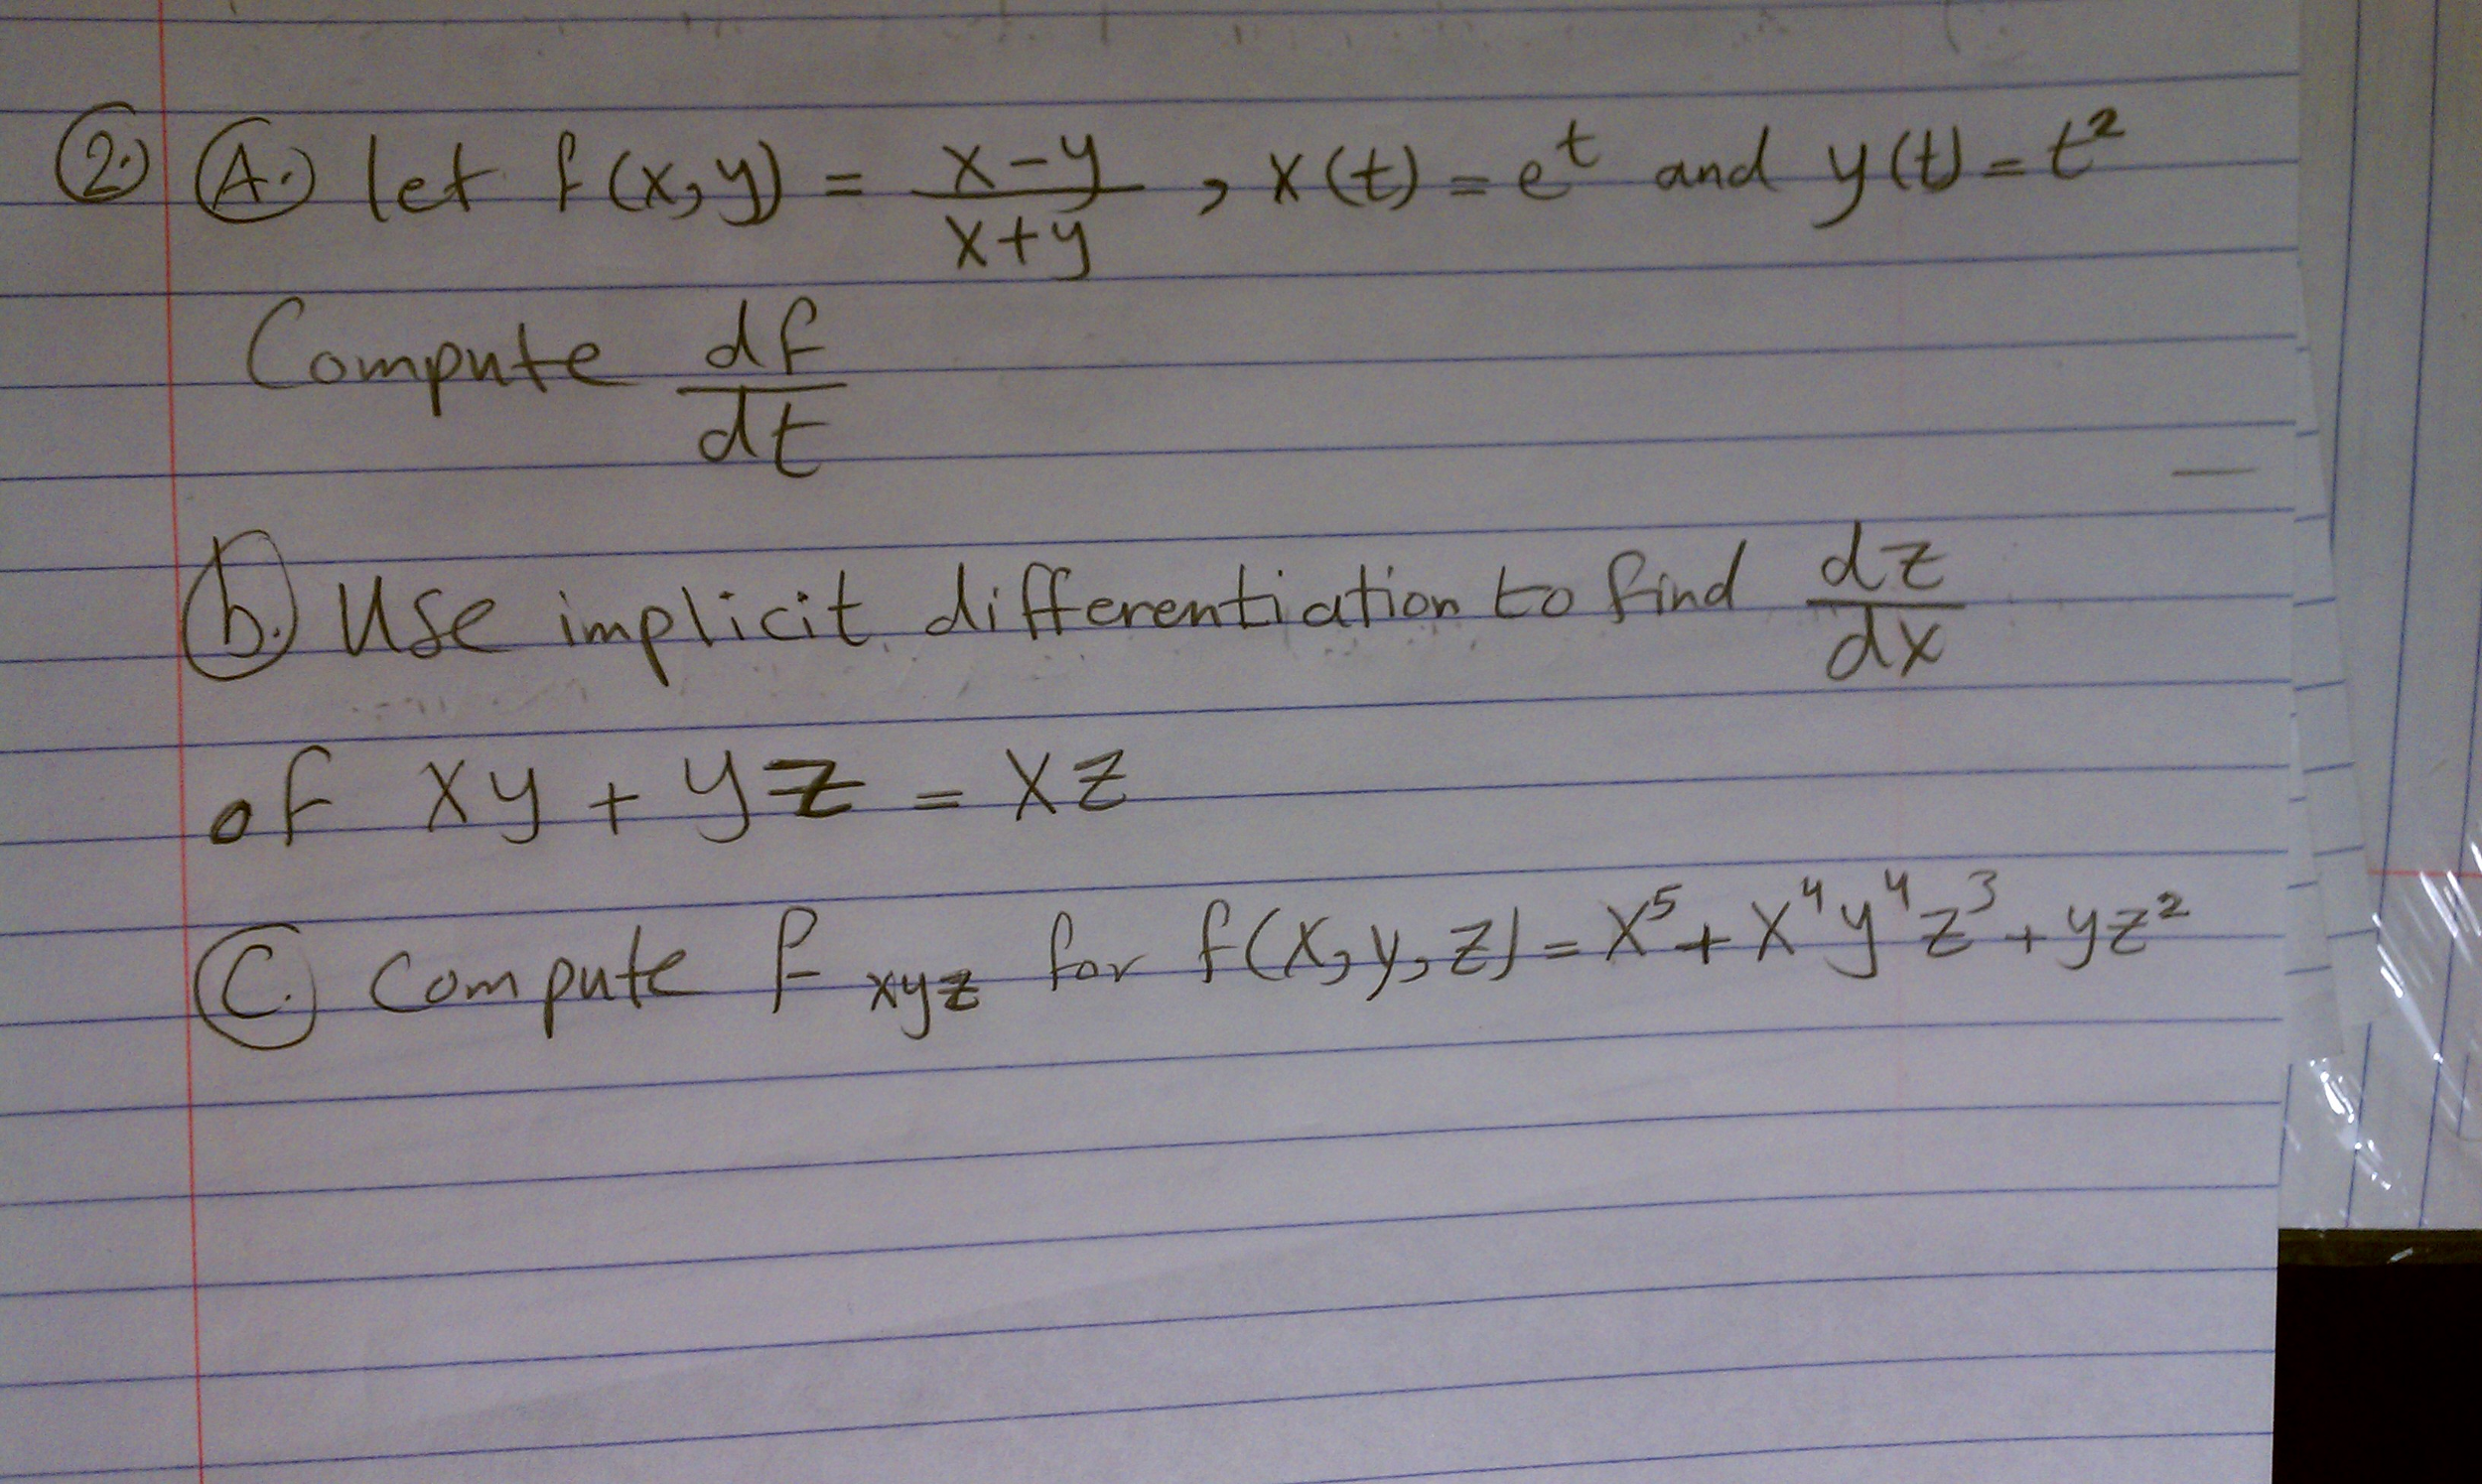 2. A. let f(x,y) = (x-y)/(x+y) , x(t) = e^t and y(t) = t²
Compute df/dt
b. Use implicit differentiation to find dz/dx
of xy + yz = xz
C. Compute f_xyz for f(x,y,z) = x⁵ + x⁴y⁴z³ + yz²